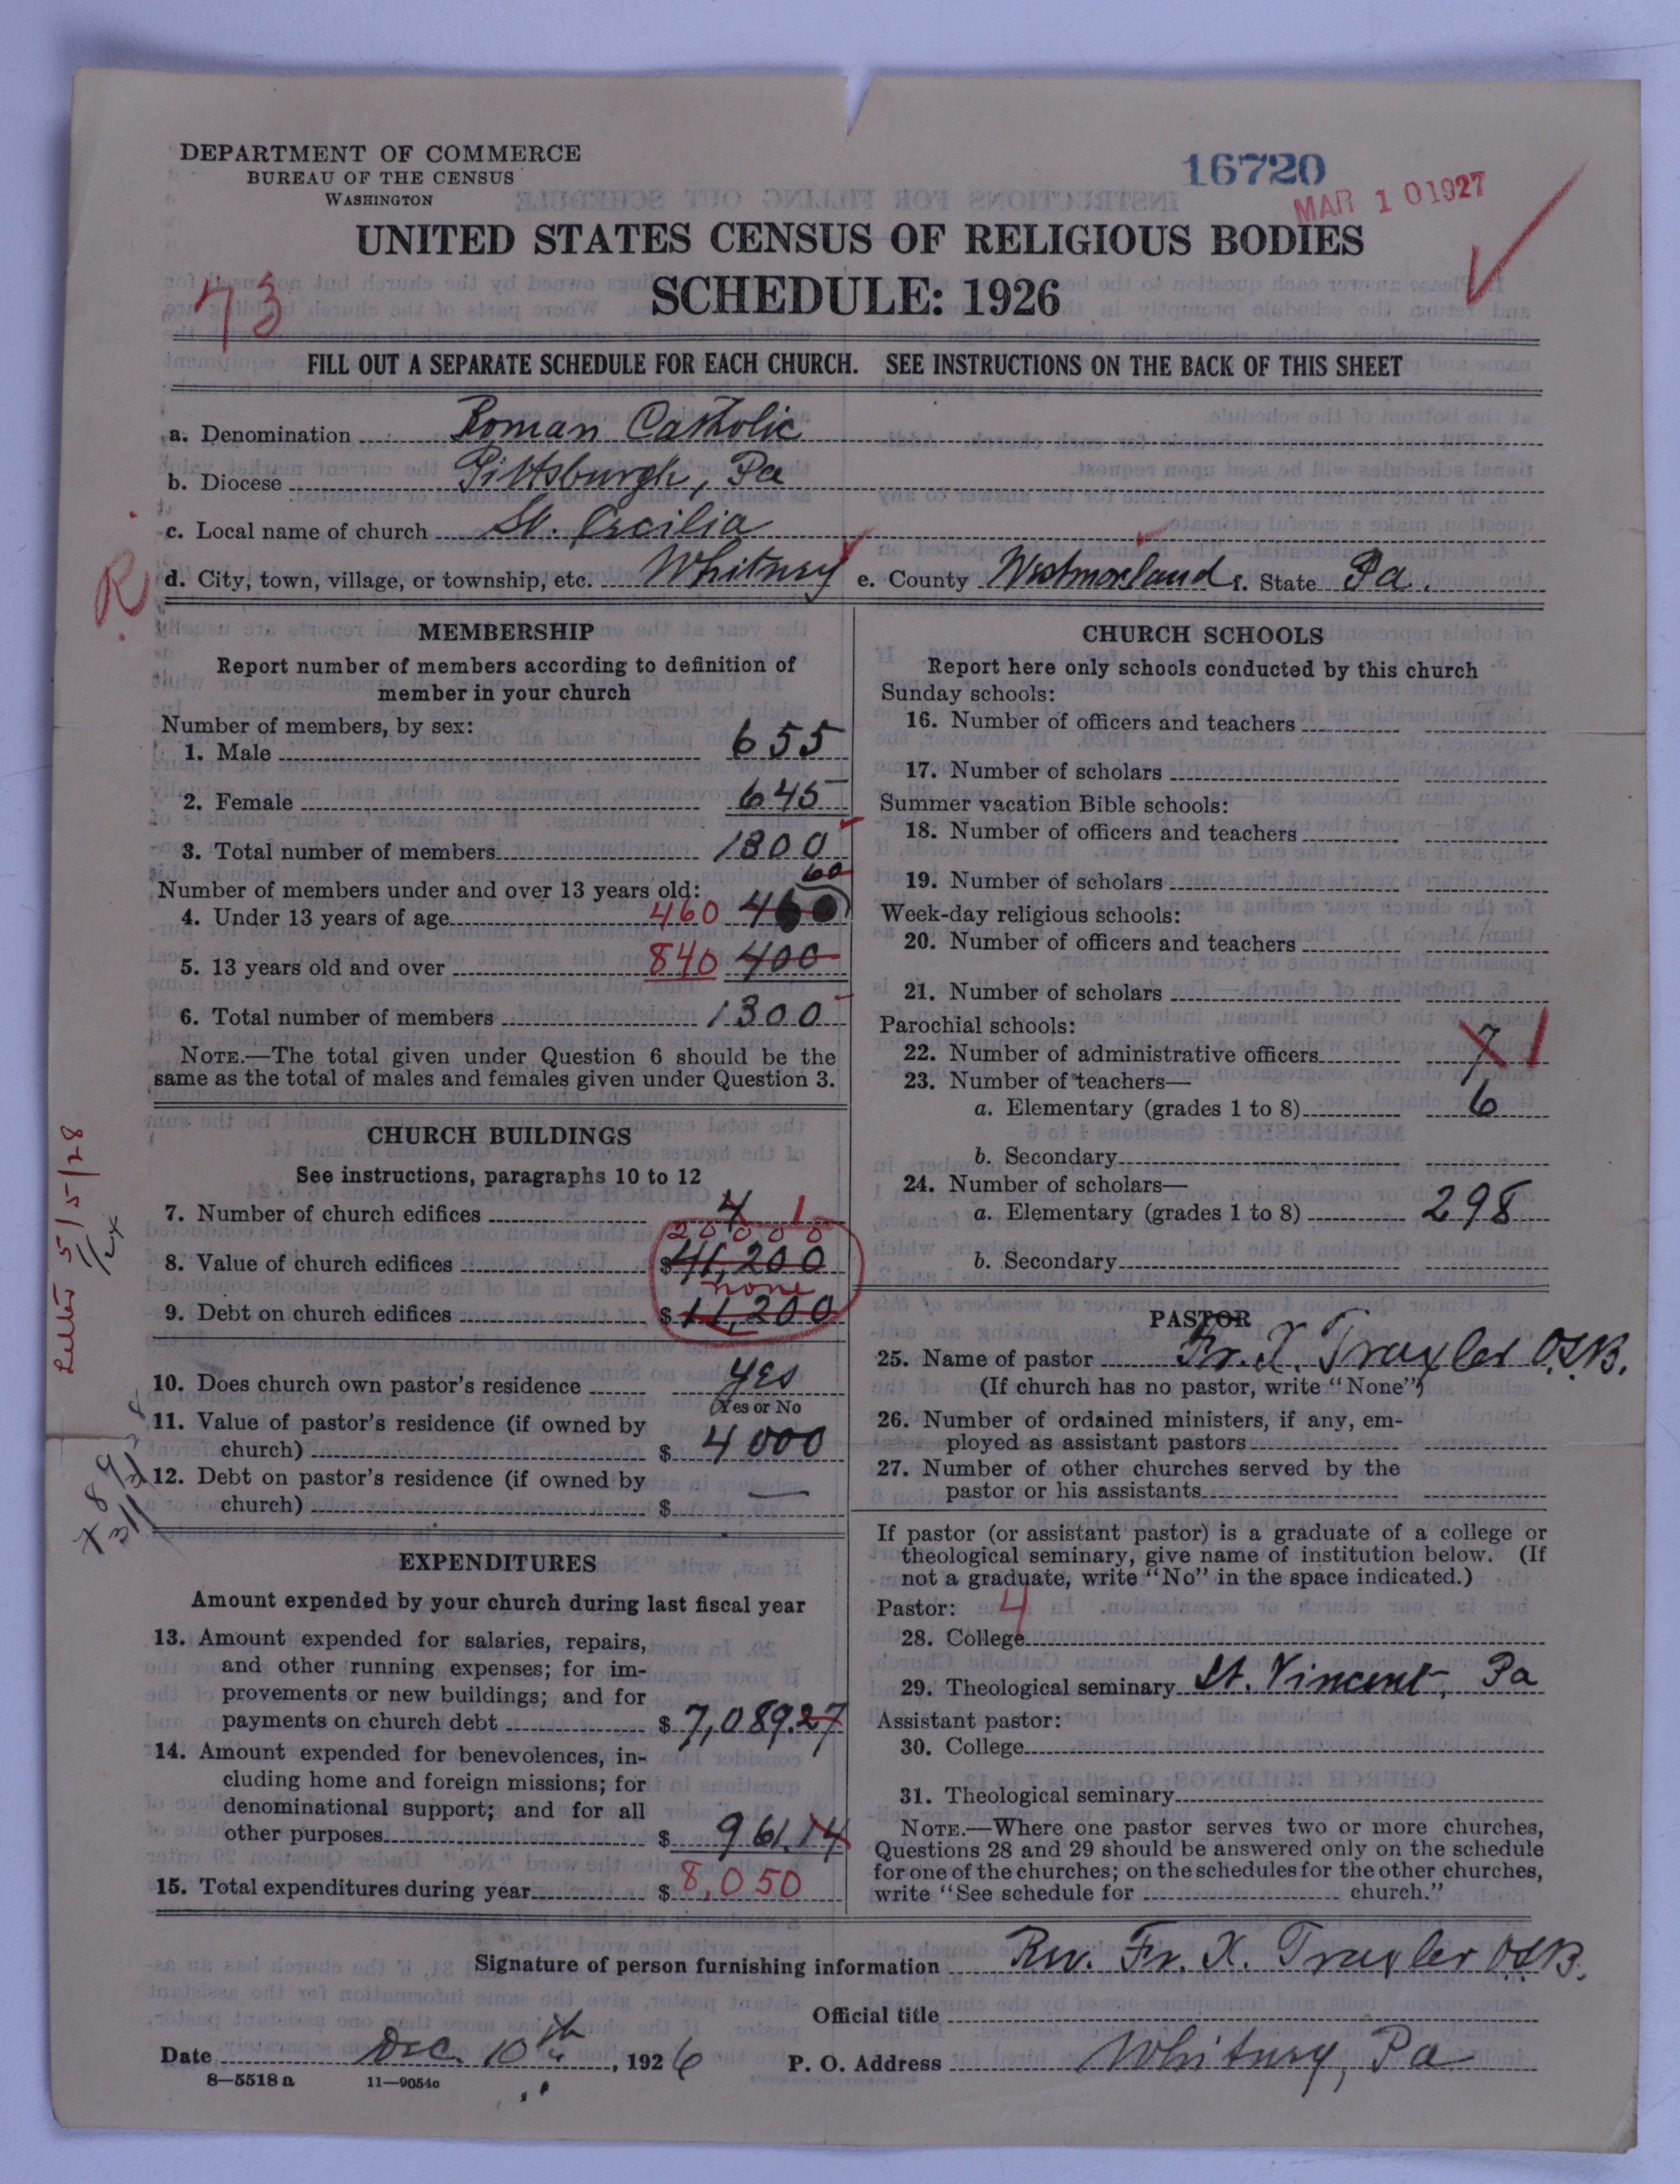 DEPARTMENT OF COMMERCE
BUREAU OF THE CENSUS
WASHINGTON
16720
MAR 10 1927
UNITED STATES CENSUS OF RELIGIOUS BODIES
SCHEDULE: 1926
73
FILL OUT A SEPARATE SCHEDULE FOR EACH CHURCH. SEE INSTRUCTIONS ON THE BACK OF THIS SHEET
a. Denomination Roman Catholic
b. Diocese Pittsburgh, Pa
c. Local name of church St. Cecilia
R
d. City, town, village, or township, etc. Whitney e. County Westmoreland f. State Pa.
MEMBERSHIP
Report number of members according to definition of
member in your church
Number of members, by sex:
1. Male 655
2. Female 645
3. Total number of members 1300
60
Number of members under and over 13 years old:
4. Under 13 years of age 460
5. 13 years old and over 840 400
6. Total number of members 1300
NOTE.—The total given under Question 6 should be the
same as the total of males and females given under Question 3.
CHURCH BUILDINGS
See instructions, paragraphs 10 to 12
7. Number of church edifices 4 1
20000
8. Value of church edifices $41,200
none
9. Debt on church edifices $11,200
10. Does church own pastor's residence yes
Yes or No
11. Value of pastor's residence (if owned by
church) $ 4000
12. Debt on pastor's residence (if owned by
church) $ —
Letter 5/5/28
EXPENDITURES
Amount expended by your church during last fiscal year
13. Amount expended for salaries, repairs,
and other running expenses; for im-
provements or new buildings; and for
payments on church debt $ 7,089.27
14. Amount expended for benevolences, in-
cluding home and foreign missions; for
denominational support; and for all
other purposes $ 961.14
15. Total expenditures during year $ 8,050
CHURCH SCHOOLS
Report here only schools conducted by this church
Sunday schools:
16. Number of officers and teachers
17. Number of scholars
Summer vacation Bible schools:
18. Number of officers and teachers
19. Number of scholars
Week-day religious schools:
20. Number of officers and teachers
21. Number of scholars
Parochial schools:
22. Number of administrative officers 7 1
23. Number of teachers—
a. Elementary (grades 1 to 8) 6
b. Secondary
24. Number of scholars—
a. Elementary (grades 1 to 8) 298
b. Secondary
PASTOR
25. Name of pastor Fr. X. Traxler O.S.B.
(If church has no pastor, write "None")
26. Number of ordained ministers, if any, em-
ployed as assistant pastors
27. Number of other churches served by the
pastor or his assistants
If pastor (or assistant pastor) is a graduate of a college or
theological seminary, give name of institution below. (If
not a graduate, write "No" in the space indicated.)
Pastor: 4
28. College
29. Theological seminary St. Vincent, Pa
Assistant pastor:
30. College
31. Theological seminary
NOTE.—Where one pastor serves two or more churches,
Questions 28 and 29 should be answered only on the schedule
for one of the churches; on the schedules for the other churches,
write "See schedule for church."
Signature of person furnishing information Rev. Fr. X. Traxler O.S.B.
Official title
Date Dec. 10th, 1926 P. O. Address Whitney, Pa
8—5518a 11—9054c